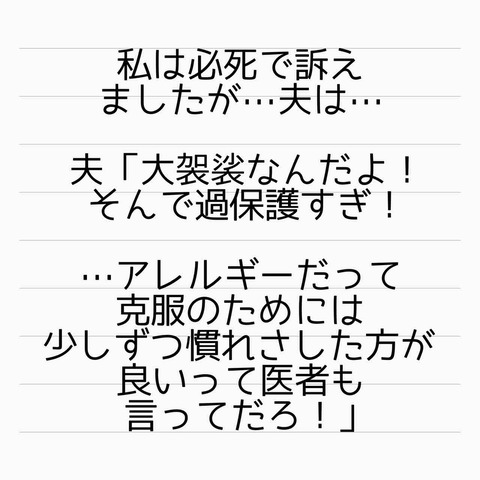 私は必死で訴え
ましたが…夫は…
夫「大袈裟なんだよ！
そんで過保護すぎ！
…アレルギーだって
克服のためには
少しずつ慣れさした方が
良いって医者も
言ってだろ！」